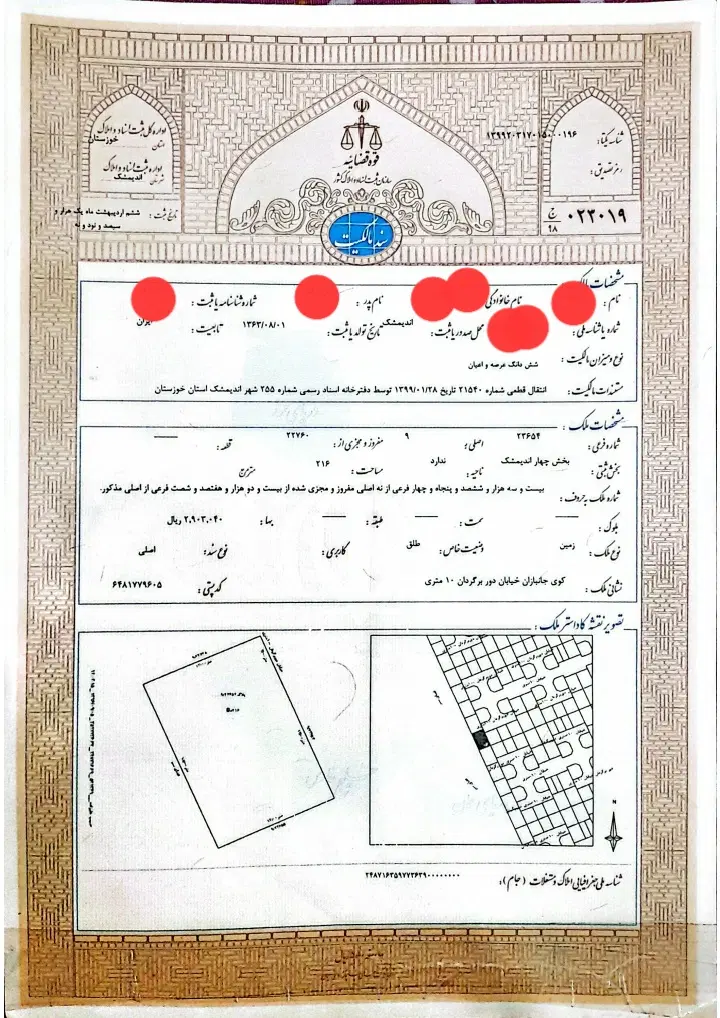 اداره کل ثبت اسناد و املاک
استان خوزستان
اداره ثبت اسناد و املاک
شهرستان اندیمشک
تاریخ ثبت : ششم اردیبهشت ماه یک هزار و سیصد و نود و نه
قوه قضائیه
سازمان ثبت اسناد و املاک کشور
سند مالکیت
شناسه یکتا: ۱۳۹۹۲۰۳۱۷۰۱۵۰۰۰۱۹۶
رمز تصدیق :
ج ۹۸ ۰۲۲۰۱۹
مشخصات مالک
نام : نام خانوادگی نام پدر : شماره شناسنامه یا ثبت :
شماره یا شناسه ملی : محل صدور یا ثبت : اندیمشک تاریخ تولد یا ثبت : ۱۳۶۳/۰۸/۰۱ تابعیت : ایران
نوع و میزان مالکیت : شش دانگ عرصه و اعیان
مستندات مالکیت : انتقال قطعی شماره ۲۱۵۴۰ تاریخ ۱۳۹۹/۰۱/۲۸ توسط دفترخانه اسناد رسمی شماره ۲۵۵ شهر اندیمشک استان خوزستان
مشخصات ملک :
شماره فرعی : ۲۳۶۵۴ اصلی : ۹ مفروز و مجزی از : ۲۲۷۶۰ قطعه :
بخش ثبتی : بخش چهار اندیمشک ناحیه : ندارد مساحت : ۲۱۶ مترمربع
شماره ملک به حروف : بیست و سه هزار و ششصد و پنجاه و چهار فرعی از نه اصلی مفروز و مجزی شده از بیست و دو هزار و هفتصد و شصت فرعی از اصلی مذکور.
بلوک : سمت : طبقه : بها : ۲,۹۰۳,۰۴۰ ریال
نوع ملک : زمین وضعیت خاص : طلق کاربری : نوع سند : اصلی
نشانی ملک : کوی جانبازان خیابان دور برگردان ۱۰ متری کد پستی : ۶۴۸۱۷۷۹۶۰۵
تصویر نقشه کاداستر ملک :
N
شناسه ملی جغرافیایی املاک و مستغلات (جام) : ۲۴۸۷۱۶۳۵۹۷۷۳۶۳۹۰۰۰۰۰۰۰۰